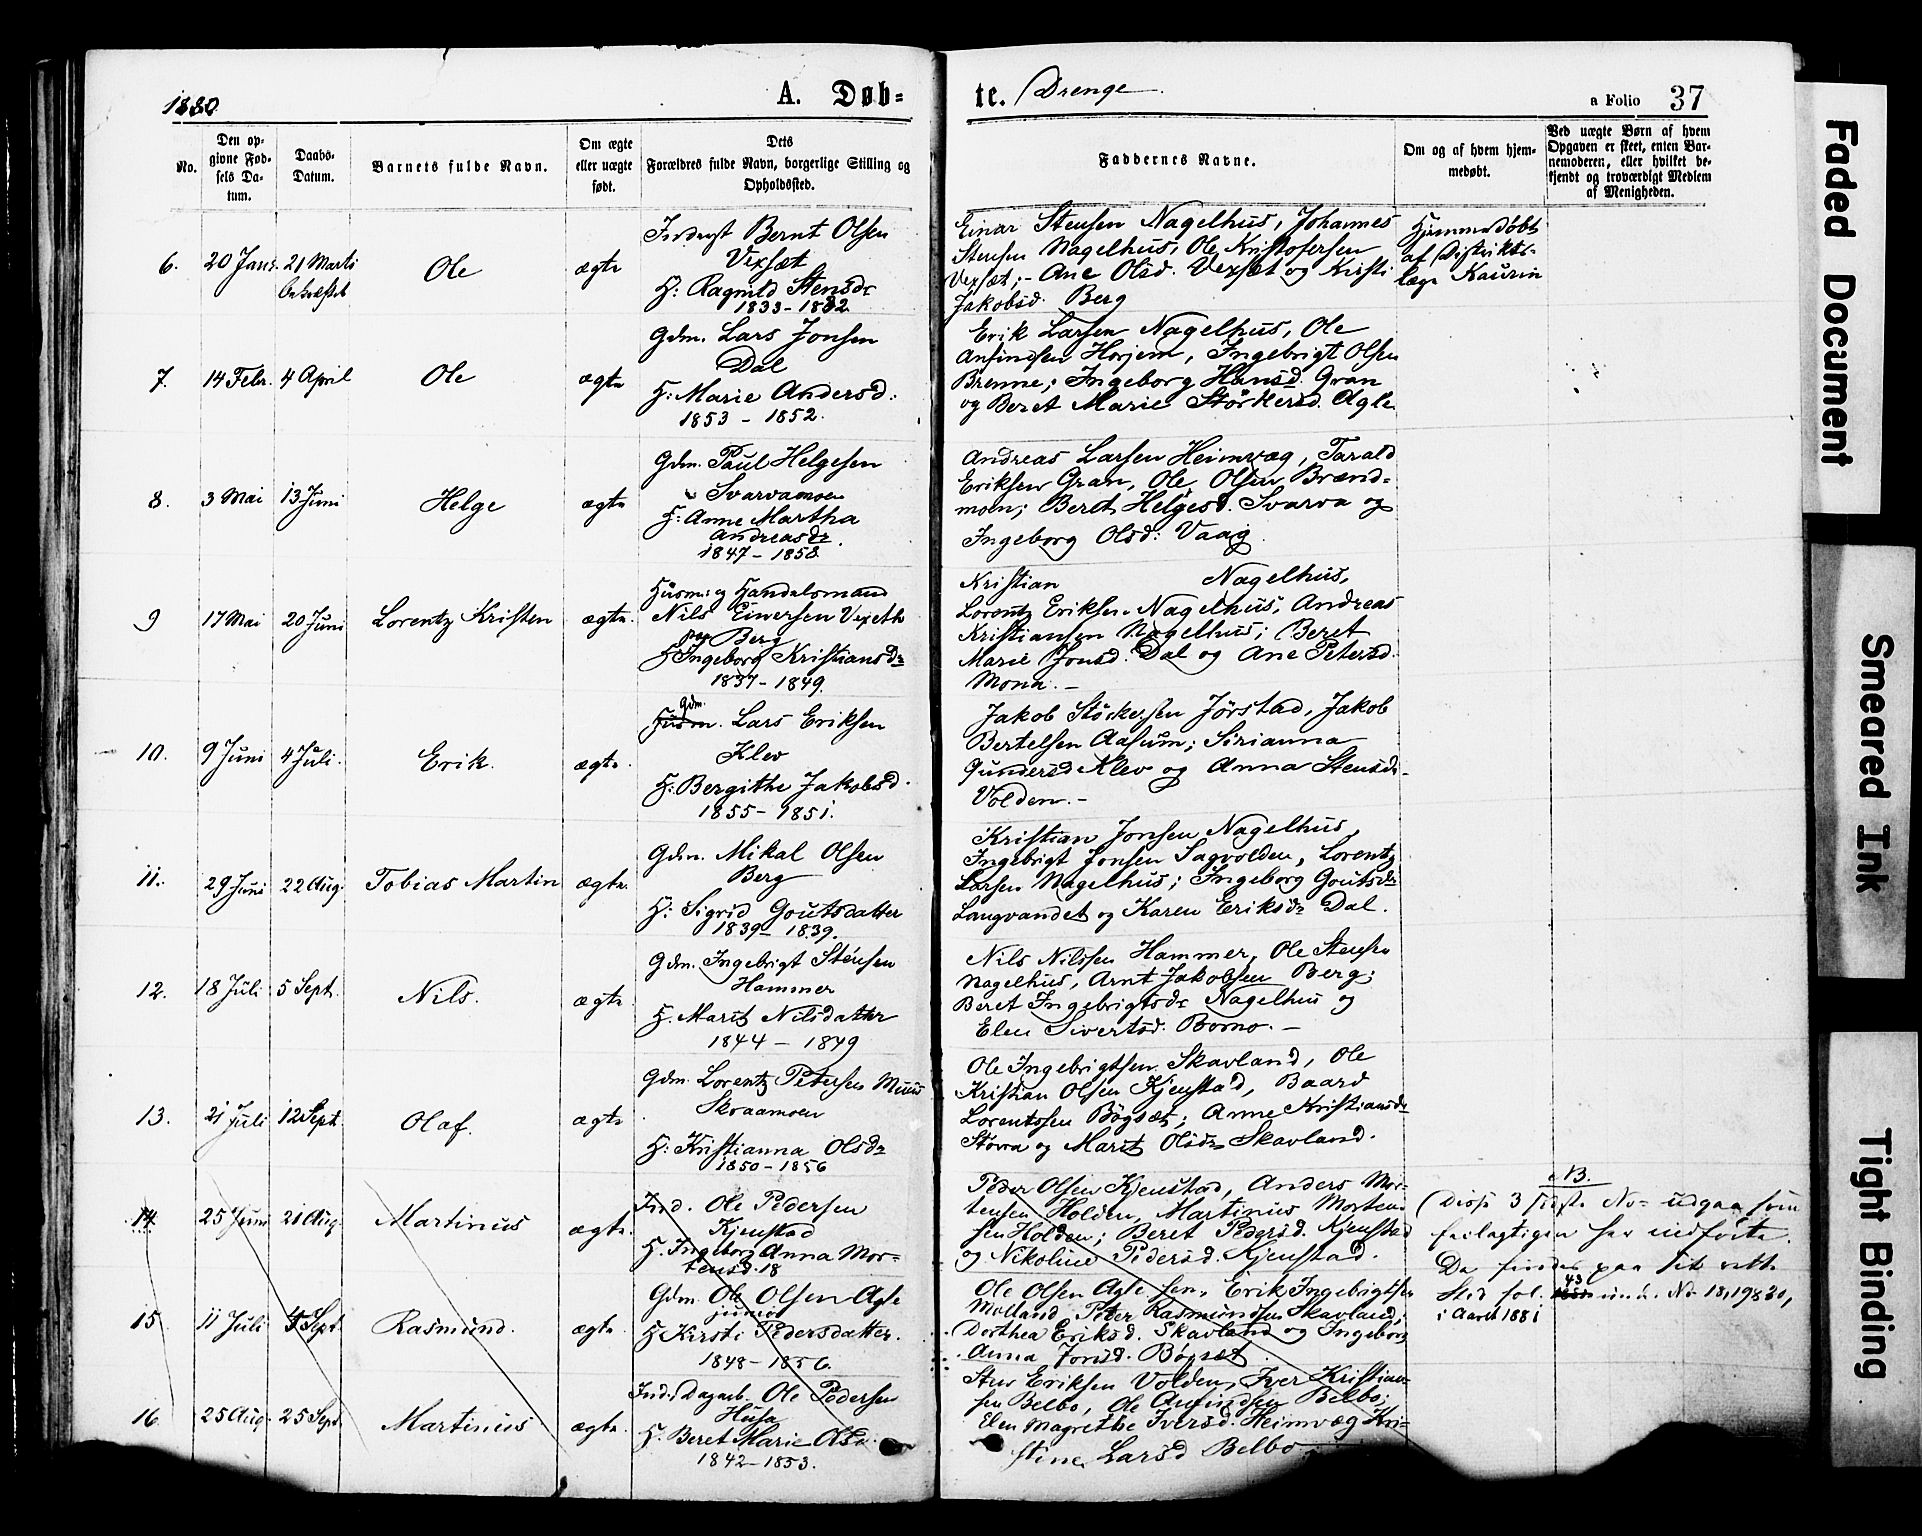 1880
A. Døb=
te. Drenge
a Folio 37
No.
Den op-
givne Fød-
sels Da-
tum.
Daabs-
Datum.
Barnets fulde Navn.
Om ægte
eller uægte
født.
Dets
Forældres fulde Navn, borgerlige Stilling og
Opholdssted.
Faddernes Navne.
Om og af hvem hjem-
medøbt.
Ved uægte Børn af hvem
Opgaven er skeet, enten Bar-
nemoderen, eller hvilket be-
kjendt og troværdigt Medlem
af Menigheden.
6. 20 Jan. 21 Marts Ole ægte
Bernt Olsen
Vexsæt
H: Ragnild Stensdr
1833-1832
Einar Stensen Nagelhus, Johannes
Stensen Nagelhus, Ole Kristofersen
Vexsæt; - Ane Olsd. Vexsæt og Kristi
Jakobsd. Berg
Hjemmedøbt
af Distrikts-
læge Kaurin
7. 14 Febr. 4 April Ole ægte
Gdm. Lars Jonsen
Dal
H: Marie Andersd.
1853 - 1852.
Erik Larsen Nagelhus, Ole
Anfindsen Horjem, Ingebrigt Olsen
Brenne; Ingeborg Hansd. Gran
og Beret Marie Størkersd. Agle
8. 3 Mai 13 Juni Helge ægte
Gdm. Paul Helgesen
Svarvamoen
H: Anne Martha
Andreasdr.
1847-1858
Andreas Larsen Heimvæg, Tarald
Eriksen Gran, Ole Olsen Brænd-
moen; Beret Helgesd. Svarva og
Ingeborg Olsd: Vaag
9 17 Mai 20 Juni Lorentz Kristen ægte
Husm: og Handelsmand
Nils Einersen Vexeth
Berg
H Ingeborg Kristiansdr
1837-1849.
Kristian Nagelhus,
Lorentz Eriksen Nagelhus, Andreas
Kristiansen Nagelhus; Beret
Marie Jonsd. Dal og Ane Petersd.
Mona. -
10. 9 Juni 4 Juli. Erik. ægte
Gdm.
Husm. Lars Eriksen
Klev
H: Bergithe Jakobsd.
1855-1851.
Jakob Størkersen Jørstad, Jakob
Bertelsen Aasum; Sirianna
Gundersd Klev og Anna Stensdr
Volden. -
11. 29 Juni 22 Aug. Tobias Martin ægte
Gdm. Mikal Olsen
Berg
H: Sigrid Goutsdatter
1839-1839.
Kristian Jonsen Nagelhus,
Ingebrigt Jonsen Sagvolden, Lorentz
Larsen Nagelhus; Ingeborg Goutsdr
Langvandet og Karen Eriksdr Dal.
12. 18 Juli 5 Sept. Nils. ægte
Gdm. Ingebrigt Stensen
Hammer
H. Marit Nilsdatter
1844 - 1849
Nils Nilssen Hammer, Ole Stensen
Nagelhus, Arnt Jakobsen Berg;
Beret Ingebrigtsdr Nagelhus og
Elen Sivertsd. Bomo. -
13. 21 Juli 12 Sept. Olaf. ægte
Gdm. Lorentz Petersen Muus
Skraamoen
H: Kristianna Olsdr
1850-1856
Ole Ingebrigtsen Skavland, Ole
Kristian Olsen Kjenstad, Baard
Lorentssen Bøgsæt; Anne Kristiansdr
Storra og Marit Olsdr Skavland.
14. 25 Juni 21 Aug. Martinus ægte
Ind. Ole Pedersen
Kjenstad
H. Ingeborg Anna Mor-
tensd. 18
Peder Olsen Kjenstad, Anders Mor-
tensen Holden, Martinus Morten-
sen Holden; Beret Pedersd. Kjenstad
og Nikoline Pedersd. Kjenstad.
NB.
Disse 3 sidste No. udgaa som
feilagtigen her indførte.
De findes paa sit rette
Sted fol. 43 No. 18, 19 & 20,
i Aaret 1881
15 11 Juli 4 Sept. Rasmund. ægte
Gdm. Ole Olsen Agle
junior
H Kirsti Pedersdatter.
1848-1856.
Ole Olsen Agle sen., Erik Ingebrigtsen
Molland, Peter Rasmundsen Skavland;
Dorthea Eriksd. Skavland og Ingeborg
Anna Jonsd. Bøgsæt
16. 25 Aug. 25 Sept. Martinus ægte
Ind. Dagarb. Ole Pedersen
Husa
H. Beret Marie Olsd.
1842-1853.
Sten Eriksen Volden, Iver Kristian-
sen Belbo, Ole Anfindsen Belbo;
Elen Magrethe Iversd. Heimvæg Kri-
stine Larsd Belbo
Faded Document
Smeared Ink
Tight Binding